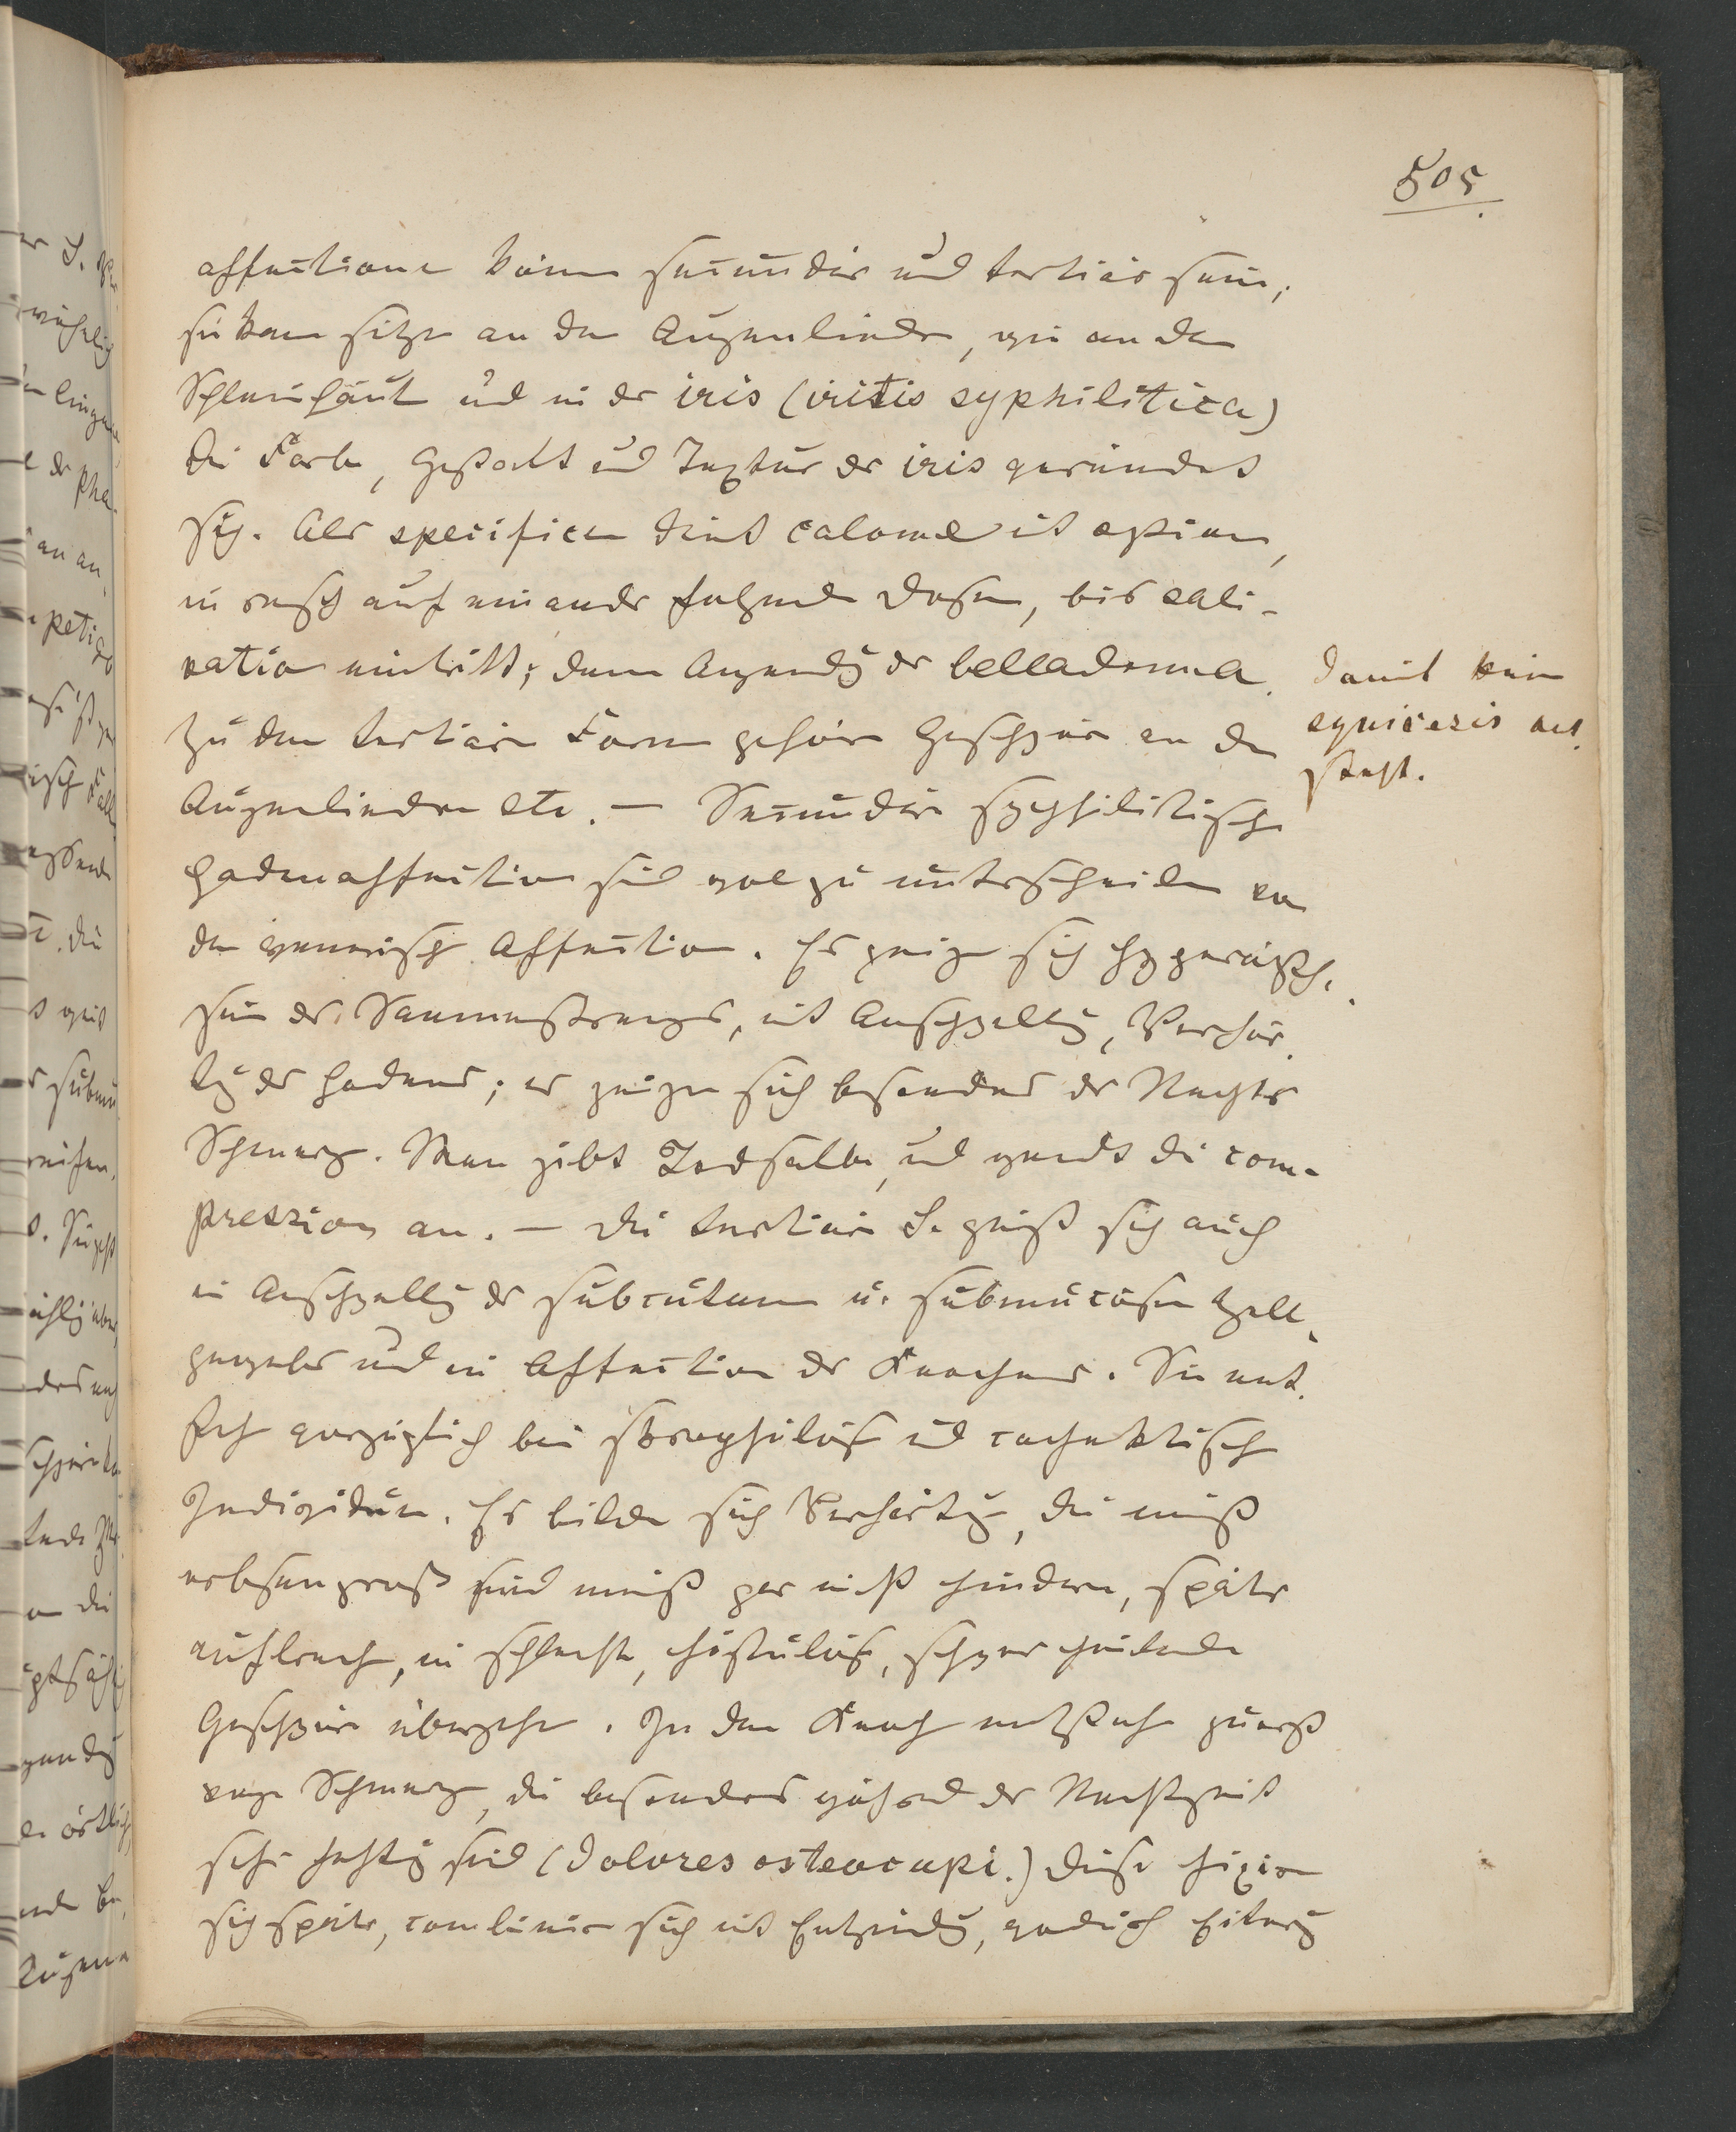 505.
affectionen können secundär und tertiär sein,
sie kann sitzen an den Augenliedern, wie an den
Schleimhäuten und in der iris (iritis syphilitica)
die Farbe, Gestalt und Textur der iris verändert
sich. Als specificum dient calomel mit opium,
in rasch auf einander folgenden Dosen, bis sali-
vatio eintritt; dann Anwendung der belladonna.
damit kein
synicesis ent
steht.
Zu den tertiären Formen gehören Geschwüre an den
Augenliedern etc. — Secundäre syphilitische
Hodenaffection sind wol zu unterscheiden von
den venerischen Affectionen. Es zeigen sich
der Samenstranges, mit Anschwellung, Verhär
tung der Hodens; es zeigen sich besonders des Nachts
Schmerzen. Man gibt Jodsalbe, und wendet die com-
pression an. — Die tertiäre S. zeigt sich auch
in Anschwellung der subcutanen u. submucösen Zell
gewebes und in Affection der Knochens. Sie ent
steht vorzüglich bei skrophulösen und cachektischen
Individuen. Es bilden sich Verhärtungen, die meist
erbsengross sind meist gar nicht hindern, später
aufbrechen, in schlechte, fistulöse, schwer heilende
Geschwüre übergehen. In den Knochen entstehen zuerst
vage Schmerzen, die besonders während der Nachtzeit
sehr heftig sind (dolores osteocopi.) diese fixiren
sich später, combiniren sich mit Entzündung, wodurch Eiterung